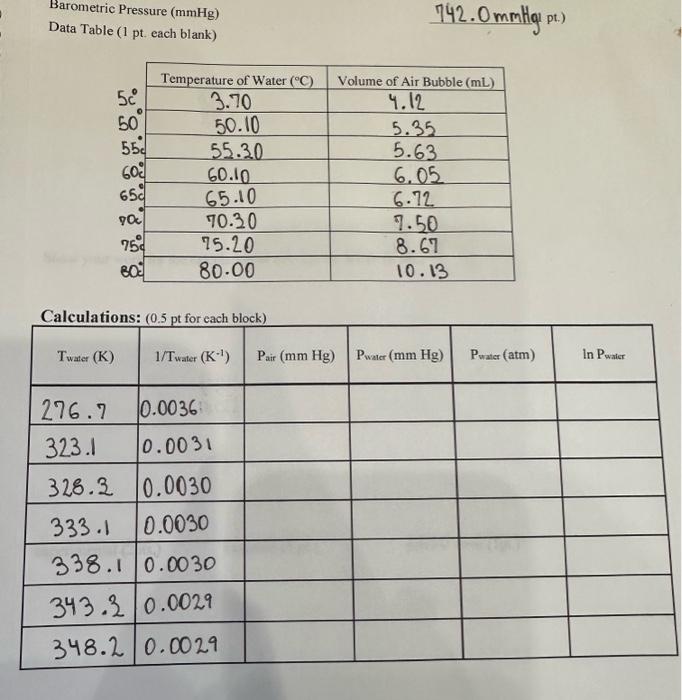 Barometric Pressure (mmHg) 742.0 mmHg pt.)
Data Table (1 pt. each blank)
Temperature of Water (°C) Volume of Air Bubble (mL)
5c° 3.70 4.12
50° 50.10 5.35
55c 55.30 5.63
60c 60.10 6.05
65c 65.10 6.72
70c 70.30 7.50
75° 75.20 8.67
80c 80.00 10.13
Calculations: (0.5 pt for each block)
Twater (K) 1/Twater (K-1) Pair (mm Hg) Pwater (mm Hg) Pwater (atm) ln Pwater
276.7 0.0036
323.1 0.0031
328.3 0.0030
333.1 0.0030
338.1 0.0030
343.3 0.0029
348.2 0.0029